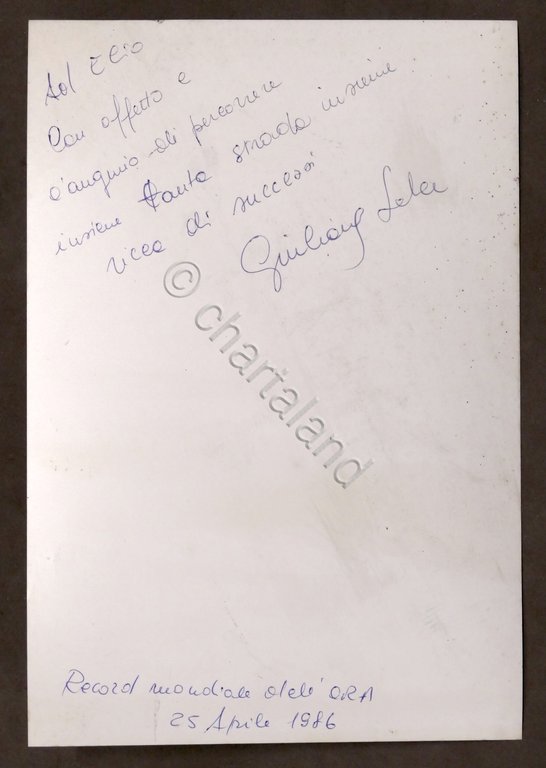 Ad Elio
Con affetto e
l'augurio di percorrere
insieme tanta strada insieme
ricca di successi
Giuliana Salce
© chartaland
Record mondiale dell'ORA
25 Aprile 1986